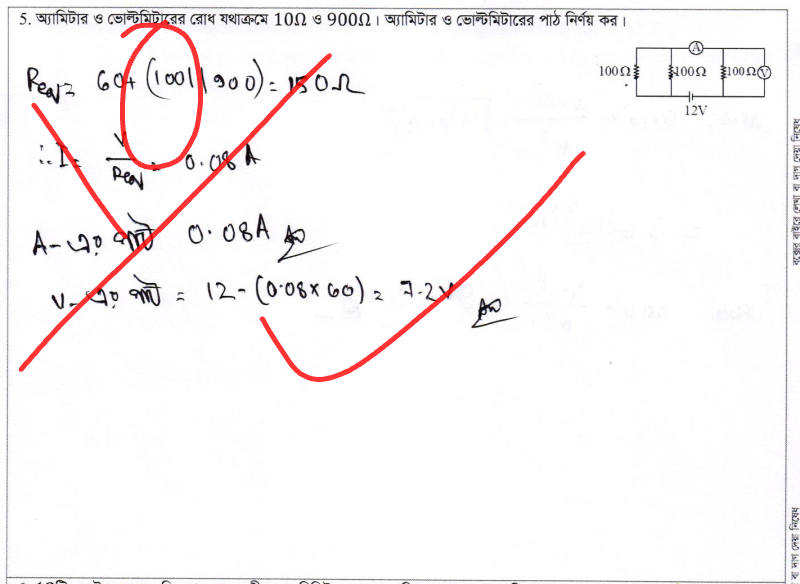 5. অ্যামিটার ও ভোল্টমিটারের রোধ যথাক্রমে 10Ω ও 900Ω। অ্যামিটার ও ভোল্টমিটারের পাঠ নির্ণয় কর।
A
100Ω 100Ω 100Ω V
12V
Req = 60+ (100||900) = 150Ω
∴ I = V/Req = 0.08 A
A-এর পাঠ 0.08A Ans
V-এর পাঠ = 12 - (0.08×60) = 7.2V Ans
বক্সের বাইরে লেখা বা দাগ দেয়া নিষেধ
বা দাগ দেয়া নিষেধ